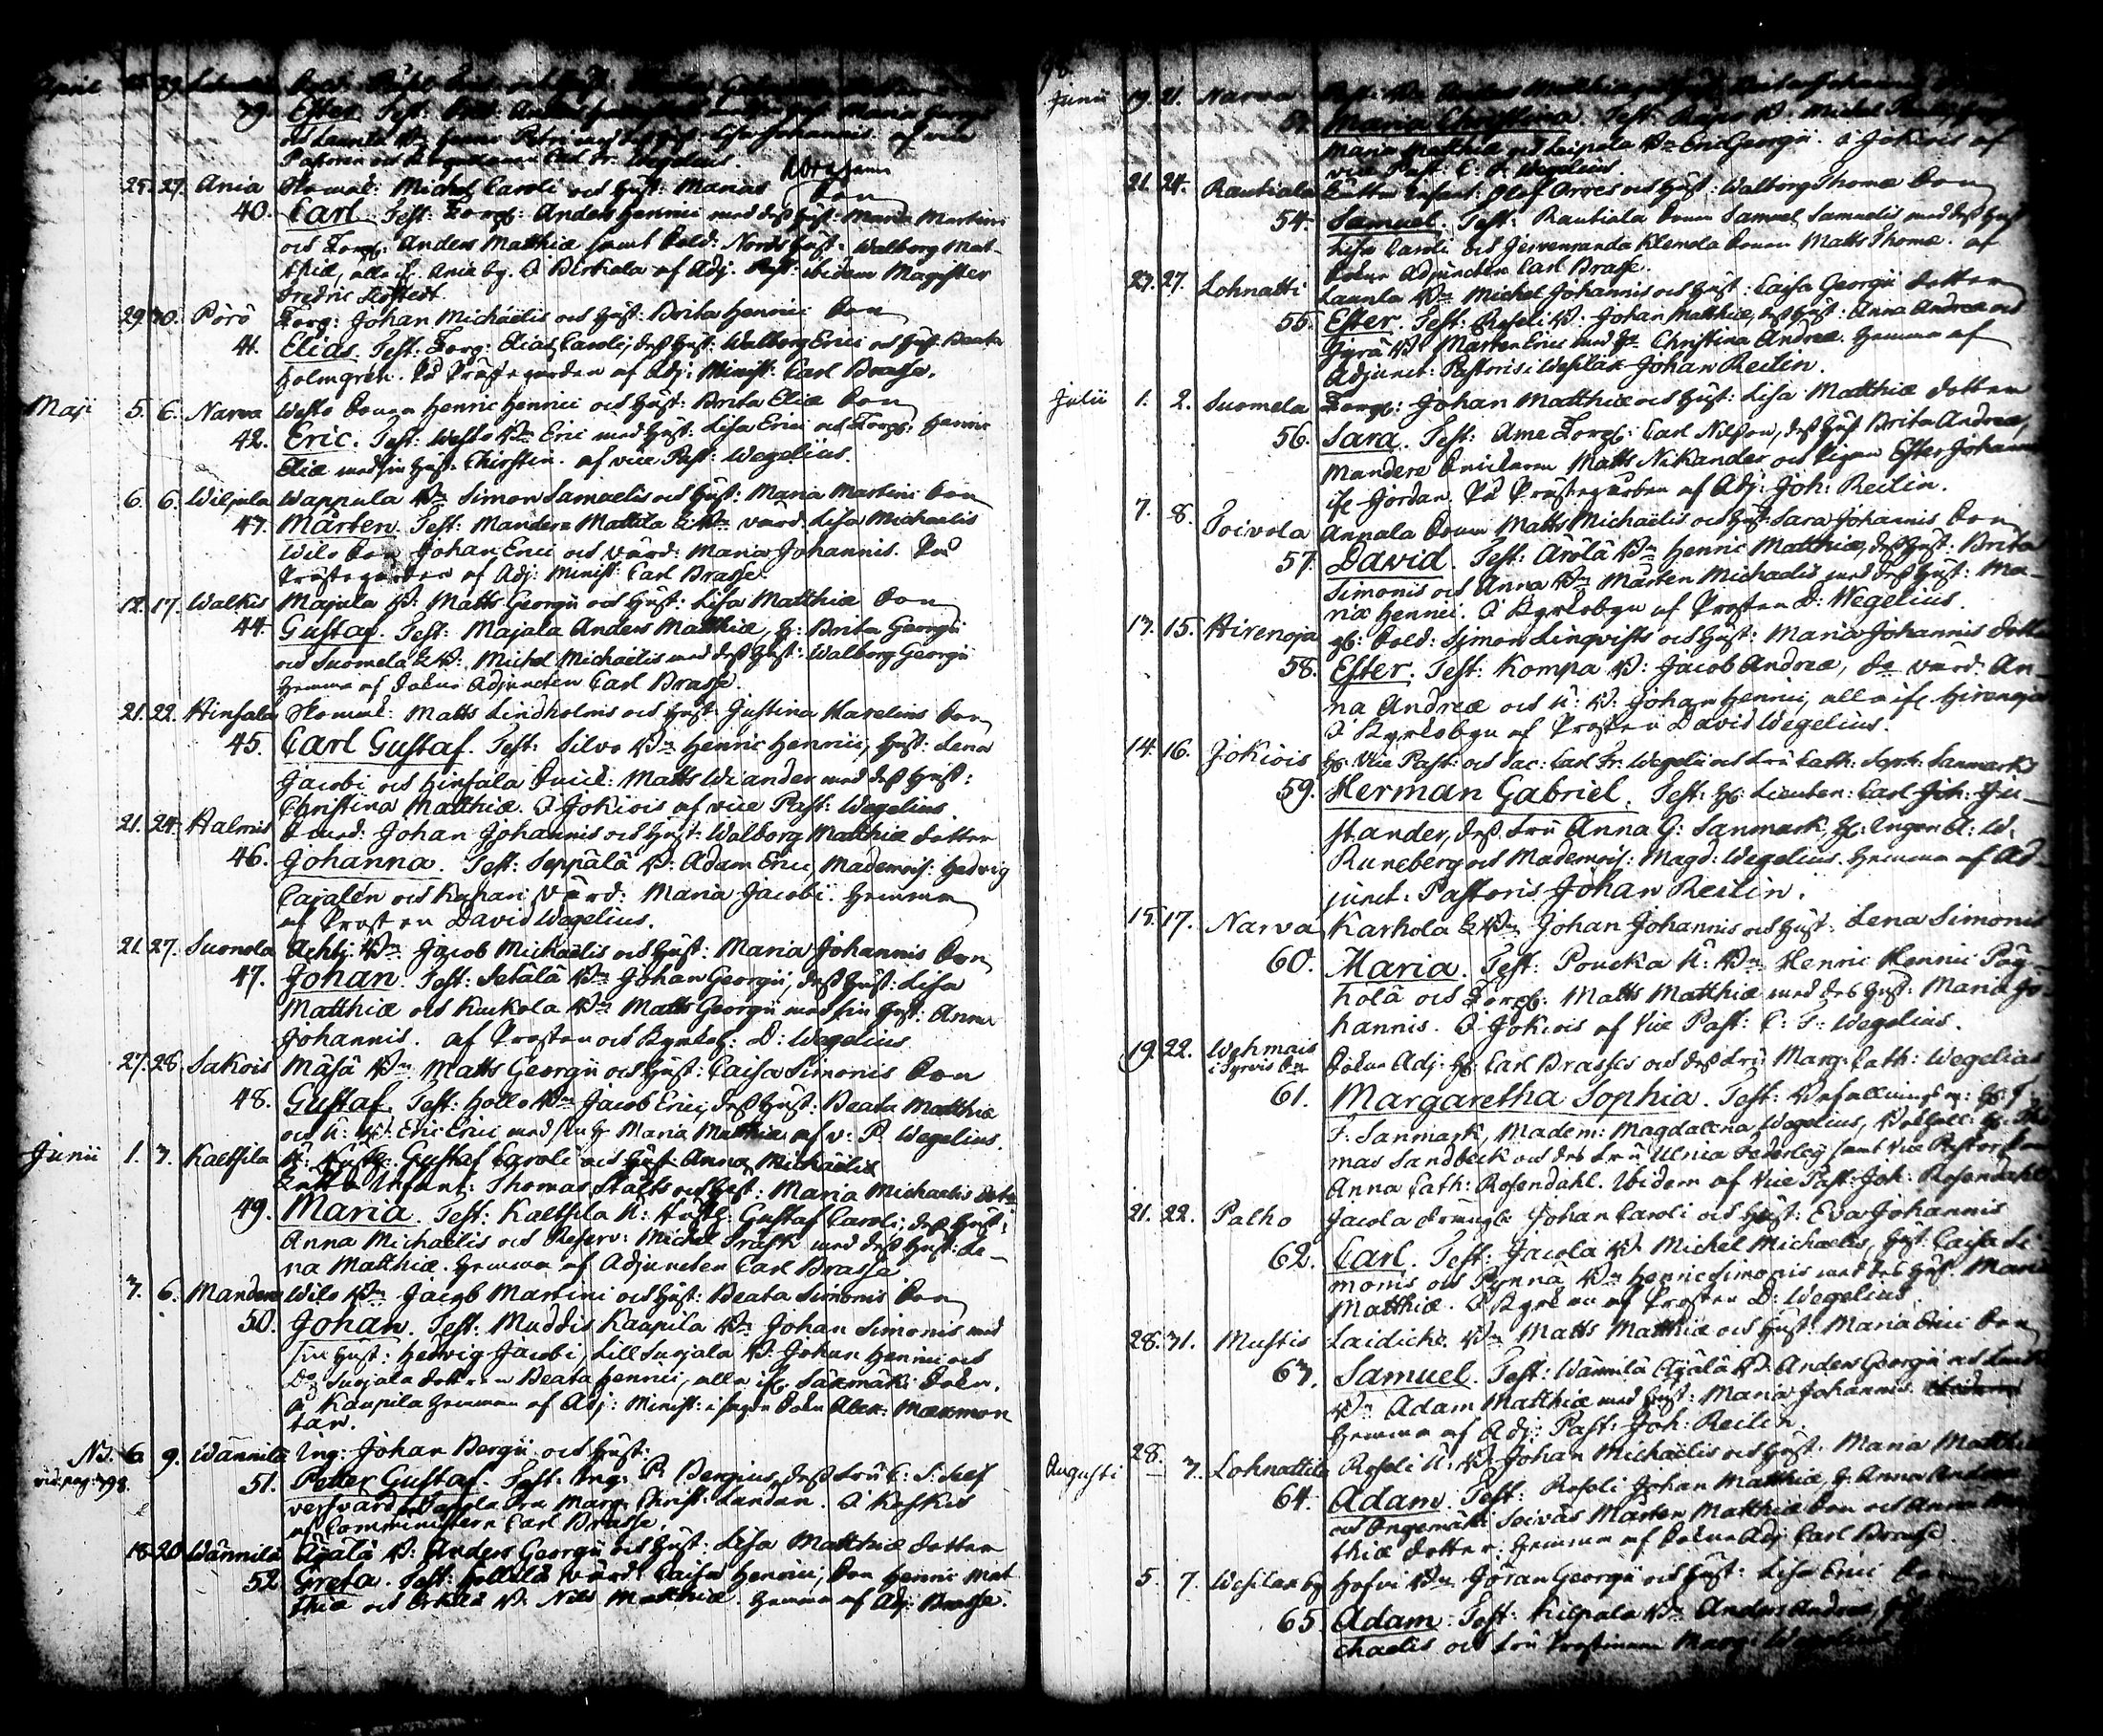 April 29.
39. Ester. Test: Maria
Pastoren Carl Fr. Wegelius.
25. 27. Ania Michel Caroli och Hust: Marias Son
40. Carl. Test: Torp: Anders Henrici med dess Hust: Maria Martini
och Torp: Anders Matthiæ samt Sold: Nords Hust: Walborg Mat-
thiæ, alla if. Ania by. I Birkala af Adj. Past: ibidem Magister
Fredric
29. 30. Pörö Torp: Johan Michaëlis och Hust: Brita Henrici Son
41. Elias. Test: Torp: Elias Caroli, dess Hust: Walborg Erici och Hust: Beata
Holmgrén. På Prästegården af Adj: Minist: Carl Brasse.
Maji 5. 6. Narva Westo Sonen Henric Henrici och Hust: Brita Eliæ Son
42. Eric. Test: Westo Bn Eric med Hust: Lisa Erici och Torp: Henric
Eliæ med sin Hust: Chirstin. af vice Past: Wegelius.
6. 6. Wilpula Wappula Bn Simon Samuelis och Hust: Maria Martini Son
43. Mårten. Test: Mandere Mattila Lisa Michaelis
Wilo Son Johan Erici och värd: Maria Johannis. På
Prästegården af Adj: Minist: Carl Brasse.
12. 17. Walkis Majala B: Matts Georgii och Hust: Lisa Matthiæ Son
44. Gustaf. Test: Majala Anders Matthiæ, H: Brita Georgii
och Suomela B: Michel Michaëlis med dess Hust: Walborg Georgii
Hemma af Sokne Adjuncten Carl Brasse.
21. 22. Hinsala Matts Lindholms och Hust: Justina Harelius Son
45. Carl Gustaf. Test: Silvo Bn Henric Henrici, Hust: Lena
Jacobi och Hinsala Matts Wiander med dess Hust:
Christina Matthiæ. I Jokiois af vice Past: Wegelius.
21. 24. Halmis Johan Johannis och Hust: Walborg Matthiæ dotter
46. Johanna. Test: Seppälä B: Adam Erici, Mademois: Hedvig
Cajalén och Kahari värd: Maria Jacobi. Hemma
af Prosten David Wegelius.
21. 27. Suomela Achtj Bn Jacob Michaëlis och Hust: Maria Johannis Son
47. Johan. Test: Setälä Bn Johan Georgii, dess Hust: Lisa
Matthiæ och Kuckola Bn Matts Georgii med sin Hust: Anna
Johannis. af Prosten och Kyrkoh: D: Wegelius.
27. 28. Sakois Mäsä Bn Matts Georgii och Hust: Caisa Simonis Son
48. Gustaf. Test: Hollo Bn Jacob Erici, dess Hust: Beata Matthiæ
och U: B: Eric Erici med sin H: Maria Matthiæ af v: P. Wegelius.
Junii 1. 3. Kaltsila Gustaf Caroli och Hust: Anna Michaëlis
Infant: Thomas Stalts och Hust: Maria Michaelis dot:
49. Maria. Test: Kaltsila Gustaf Caroli, dess Hust:
Anna Michaëlis och Reserv: Michel Frask med dess Hust: Le-
na Matthiæ. Hemma af Adjuncten Carl Brasse
3. 6. Mandere Wilo Bn Jacob Martini och Hust: Beata Simonis Son
50. Johan. Test. Muddis Kaupila Bn Johan Simonis med
sin Hust: Hedvig Jacobi, Lill Suojala B: Johan Henrici och
Do Suojala dottren Beata Henrici, alla if. Säxmäki Sokn.
å Kaupila Hemman af Adj: Minist:
tan.
NB. 6. 9. Wännilä Ing: Johan Bergii och Hust:
vid. pag: 398.
51. Petter Gustaf. Test: Ing: P. Bergius, dess Fru C: S:
Marg: Christ: Landan. I Kaskis
af Comministern Carl Brasse.
18. 20. Wännilä Äijälä B: Anders Georgii och Hust: Lisa Matthiæ dotter
52. Greta. Test: Hollilä värd: Caisa Henrici, Son Henric Mat
thiæ och Erkilä B: Nils Matthiæ. Hemma af Adj: Brasse.
Junii 19. 21. Narva
53. Maria Christina. Test: Michel
Maria Matthiæ och Leipala Bn Eric Georgii. i Jokiois af
vice Past: C. F. Wegelius.
21. 24. Rautiala Infant: Olof Orres och Hust: Walborg Thomæ Son
54. Samuel. Test: Rautiala Sonen Samuel Samuelis med dess Hust
Lisa Caroli och Jervenranda Klemola Sonen Matts Thomæ. af
Sokne Adjuncten Carl Brasse.
23. 27. Lohnatti Launla Bn Michel Johannis och Hust: Caisa Georgii dotter
55. Ester. Test: Roseli B: Johan Matthiæ, dess Hust: Anna Andreæ och
Jyrä B: Mårten Erici med H: Christina Andreæ. Hemma af
Adjunct: Pastoris i Wesilax Johan Reilin.
Julii 1. 2. Suomela Torp: Johan Matthiæ och Hust: Lisa Matthiæ dotter
56. Sara. Test: Ame Torp: Carl Nilsson, dess Hust Brita Andreæ,
Mandere Matts Nikander och Pigan Ester Johannis
if. Jordan. På Prästegården af Adj: Joh: Reilin.
7. 8. Toivola Annala Sonen Matts Michaëlis och Hust: Sara Johannis Son
57. David. Test: Arölä Bn Henric Matthiæ, dess Hust: Brita
Simonis och Anna Bn Mårten Michaelis med dess Hust: Ma-
riæ Henrici. I Kyrkobyn af Prosten D: Wegelius.
13. 15. Hirenoja Sold: Simon Linqvists och Hust: Maria Johannis dotter
58. Ester. Test: Kompa B: Jacob Andreæ, Do värd: An-
na Andreæ och U: B: Johan Henrici, alla if. Hirenoja
I Kyrkobyn af Prosten David Wegelius.
14. 16. Jokiois H: Vice Past: och Sac: Carl Fr: Wegelii och Fru Cath: Soph: Sanmarks
59. Herman Gabriel. Test: H: Lieuten: Carl Joh: Ju-
stander, dess Fru Anna G: Sanmark, H: Ingen A: W:
Runeberg och Mademois: Magd: Wegelius. Hemma af Ad-
junct: Pastoris Johan Reilin.
15. 17. Narva Karhola Johan Johannis och Hust: Lena Simonis
60. Maria. Test: Poucka U: Bn Henric Henrici Päy-
hölä och Torp: Matts Matthiæ med dess Hust: Maria Jo-
hannis. I Jokiois af Vice Past: C: F: Wegelius.
19. 22. Wehmais Sokne Adj: H: Carl Brasses och dess Fru Marg: Cath: Wegelias
i Tyrvis Sn
61. Margaretha Sophia. Test: Befallningsm: H:
F: Sanmark, Madem: Magdalena Wegelius,
mas Sandbeck och des Fru Ulrica Federley samt Vice Pastorskan
Anna Cath: Rosendahl. Ibidem af Vice Past: Joh: Rosendahl
21. 22. Palho Jacola Johan Caroli och Hust: Eva Johannis
62. Carl. Test: Jacola B: Michel Michaelis, Hust: Caisa Si-
monis och Pynnä Bn Henric Simonis med des Hust: Maria
Matthiæ. I Kyrkan af Prosten D: Wegelius.
28. 31. Mustis Laidicke Bn Matts Matthiæ och Hust: Maria Erici Son
63. Samuel. Test: Wännilä Äijälä B: Anders Georgii och
Bn Adam Matthiæ med Hust: Maria Johannis.
Hemma af Adj: Past: Joh: Reilin.
Augusti 28. 3. Lohnattila Roseli U: B: Johan Michaëlis och Hust: Maria Matthiæ
64. Adam. Test: Roseli Johan Matthiæ, H: Anna Andreæ
och Ongemäki Soivas Mårten Matthiæ Son och Anna
thiæ dotter. Hemma af Sokne Adj: Carl Brasse.
5. 7. Wesilax by Hofvi Bn Jöran Georgii och Hust: Lisa Erici Son
65. Adam. Test: Kilpala Bn Anders Andreæ,
chaelis och Fru Prostinnan Marg: Wegelius